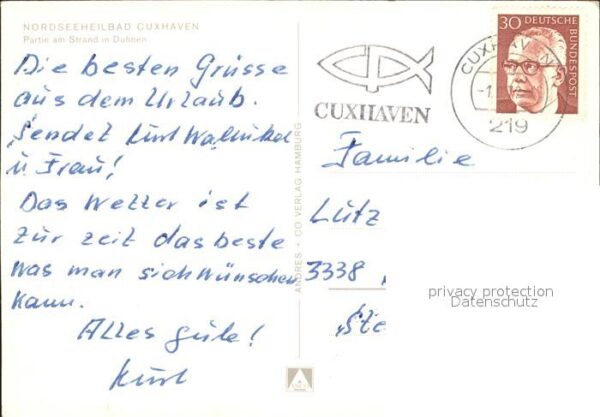 NORDSEEHEILBAD CUXHAVEN
Partie am Strand in Duhnen
Die besten Grüsse
aus dem Urlaub.
Sendet Kurt
u Frau!
Das Wetter ist
zur zeit das beste
was man sich wünschen
kann.
Alles gute!
Kurt
ANDRES + CO VERLAG HAMBURG
CUXHAVEN
30 DEUTSCHE
BUNDESPOST
CUXHAVEN
219
Familie
Lutz
3338
Ste
privacy protection
Datenschutz